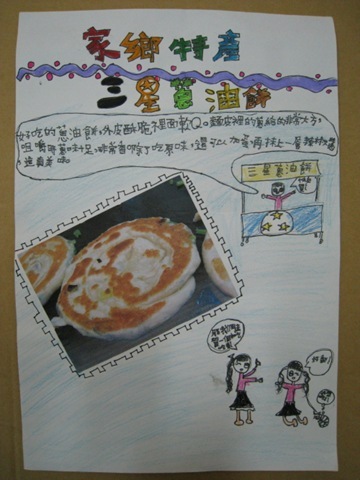 家鄉特產
三星蔥油餅
好吃的蔥油餅,外皮酥脆裡面軟Q。麵皮裡的蔥給的非常大方,
咀嚼時蔥味足,非常香除了吃原味,還可以加蛋再抹上一層辣椒醬
達真美味
三星蔥油餅
好吃!